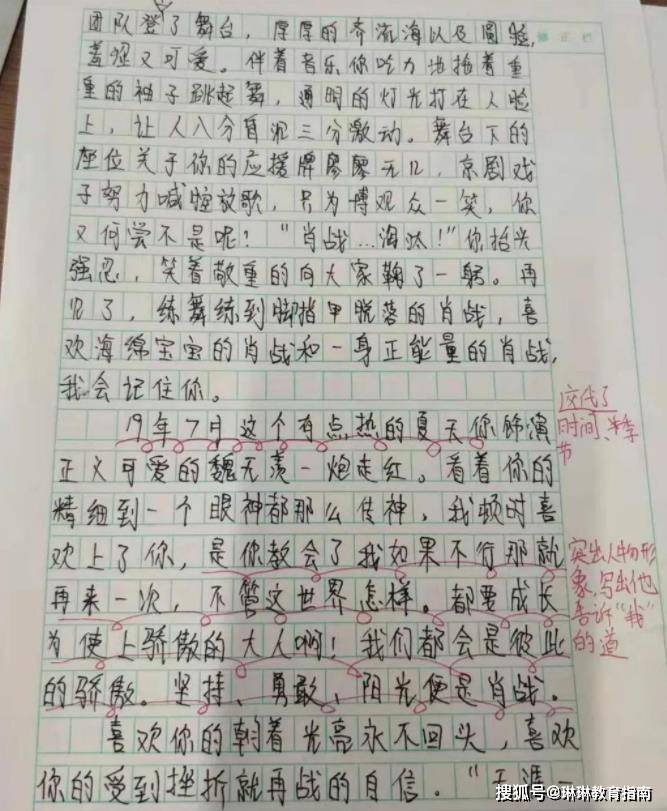 团队登了舞台，厚厚的齐流海以及圆脸,
羞涩又可爱。伴着音乐你吃力地抬着重
重的袖子跳起舞，通明的灯光打在人脸
上，让人八分自泥三分激动。舞台下的
座位关于你的应援牌寥寥无几，京剧戏
子努力喊嗓放歌，只为博观众一笑，你
又何尝不是呢！"肖战...淘汰！"你抬头
强忍，笑着敬重的向大家鞠了一躬。再
见了，练舞练到脚指甲脱落的肖战，喜
欢海绵宝宝的肖战和一身正能量的肖战,
我会记住你。
19年7月这个有点热的夏天你饰演
正义可爱的魏无羡一炮走红。看着你的
精细到一个眼神都那么传神，我顿时喜
欢上了你，是你教会了我如果不行那就
再来一次，不管这世界怎样。都要成长
为使上骄傲的大人啊！我们都会是彼此
的骄傲。坚持、勇敢、阳光便是肖战。
喜欢你的朝着光亮永不回头，喜欢
你的受到挫折就再战的自信。"
交代了
时间、季
节
突出人物形
象,写出他
告诉"我"
的道
搜狐号@琳琳教育指南